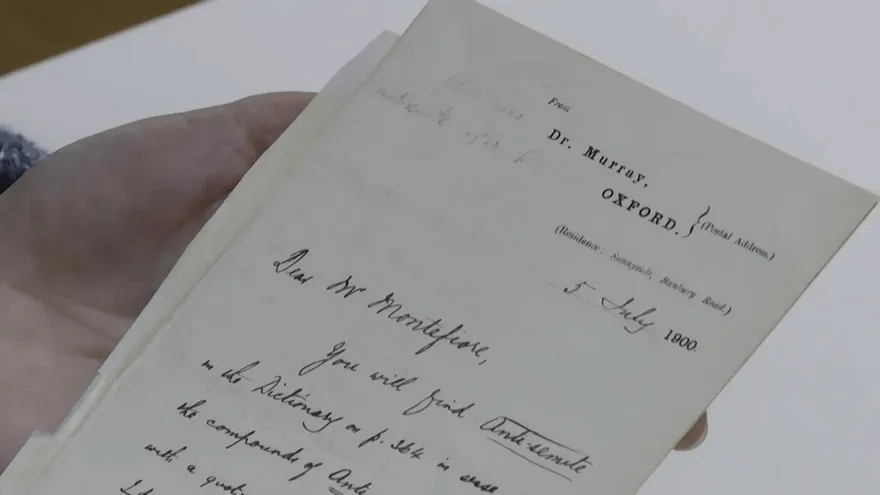 From
Dr. Murray,
OXFORD. } (Postal Address.)
(Residence: Sunnyside, Banbury Road.)
5 July 1900.
Dear Mr Montefiore,
You will find Anti-semite
in the Dictionary on p. 364 in
the compounds of Anti
with a